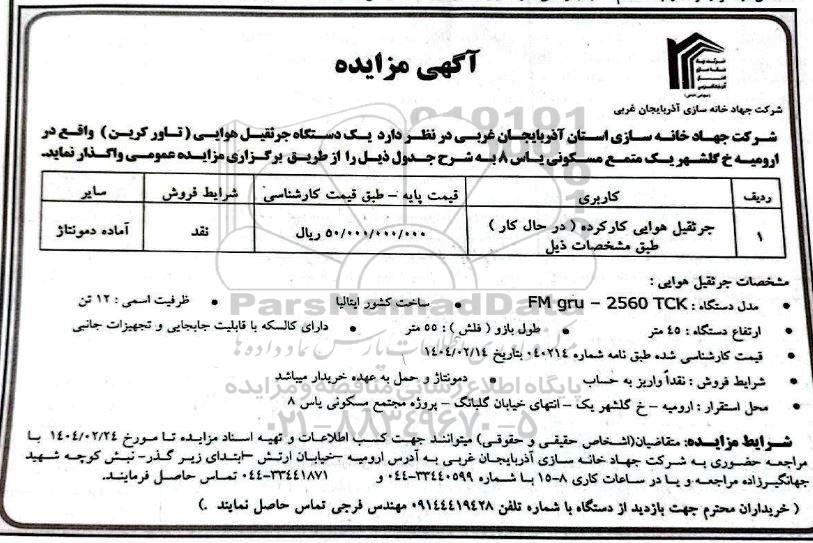 آگهی مزایده
شرکت جهاد خانه سازی آذربایجان غربی
شرکت جهاد خانه سازی استان آذربایجان غربی در نظر دارد یک دستگاه جرثقیل هوایی ( تاور کرین ) واقع در
ارومیه خ گلشهر یک متمع مسکونی یاس ۸ به شرح جدول ذیل را از طریق برگزاری مزایده عمومی واگذار نماید.
ردیف کاربری قیمت پایه – طبق قیمت کارشناسی شرایط فروش سایر
۱ جرثقیل هوایی کارکرده ( در حال کار ) طبق مشخصات ذیل ۵۰/۰۰۰/۰۰۰/۰۰۰ ریال نقد آماده دمونتاژ
مشخصات جرثقیل هوایی :
• مدل دستگاه : FM gru – 2560 TCK • ساخت کشور ایتالیا • ظرفیت اسمی : ۱۲ تن
• ارتفاع دستگاه : ۴۵ متر • طول بازو ( فلش ) : ۵۵ متر • دارای کالسکه با قابلیت جابجایی و تجهیزات جانبی
• قیمت کارشناسی شده طبق نامه شماره ۰۴۰۲۱۴ بتاریخ ۱۴۰۴/۰۲/۱۴
• شرایط فروش : نقداً واریز به حساب • دمونتاژ و حمل به عهده خریدار میباشد
• محل استقرار : ارومیه – خ گلشهر یک – انتهای خیابان گلبانگ – پروژه مجتمع مسکونی یاس ۸
شرایط مزایده: متقاضیان(اشخاص حقیقی و حقوقی) میتوانند جهت کسب اطلاعات و تهیه اسناد مزایده تا مورخ ۱۴۰۴/۰۲/۲۴ با
مراجعه حضوری به شرکت جهاد خانه سازی آذربایجان غربی به آدرس ارومیه –خیابان ارتش –ابتدای زیر گذر- نبش کوچه شهید
جهانگیرزاده مراجعه و یا در ساعات کاری ۸-۱۵ با شماره ۳۳۴۴۰۵۹۹-۰۴۴ و ۳۳۴۴۱۸۷۱-۰۴۴ تماس حاصل فرمایند.
( خریداران محترم جهت بازدید از دستگاه با شماره تلفن ۰۹۱۴۴۴۱۹۴۲۸ مهندس فرجی تماس حاصل نمایند .)
ParsNamadData
پایگاه اطلاع رسانی مناقصه و مزایده
۰۲۱-۸۸۳۴۹۶۷۰-۵